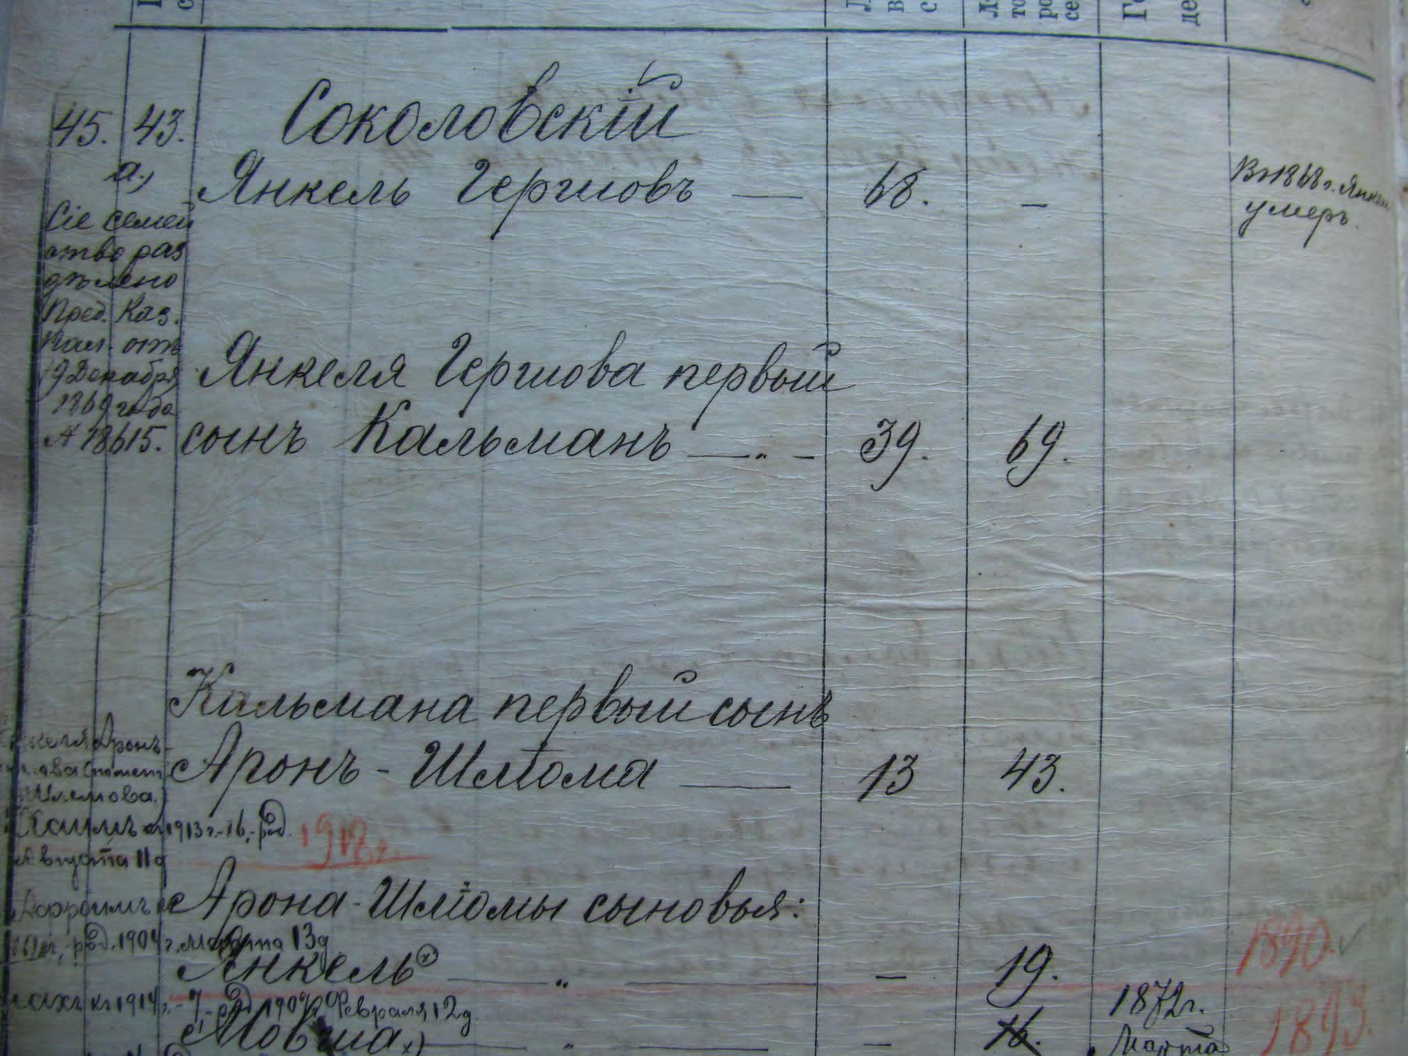 45. 43. Соколовскій
а., Янкель Гершовъ — 68. — Въ 1868 г. Янкель
умеръ.
Сіе семей
ство раз
дѣлено
Пред. Каз.
Пал. отъ
19 Декабря
1869 года
№ 18615.
Янкеля Гершова первый
сынъ Кальманъ — „ — 39. 69.
Кальмана первый сынъ
Аронъ-Шліома — 13 43.
Шлемова.
Хаимъ къ 1913 г.-16, род. 1912 г.
Августа 11 д
Арона-Шліомы сыновья:
род. 1904 г. Марта 13 д
Янкель х) — „ — — 19. 1890.
къ 1914 г. - 7, род. Февраля 12 д.
Мовша х) — „ — — 16. 1872 г. 1893.
Марта